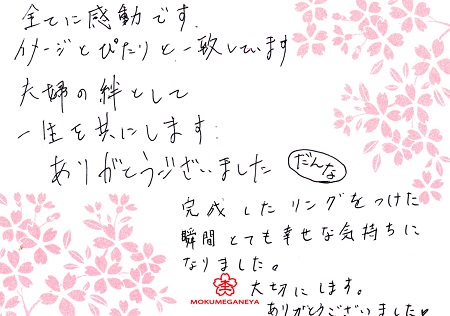 全てに感動です.
イメージとぴたりと一致しています
夫婦の絆として
一生を共にします.
ありがとうございました
だんな
完成したリングをつけた
瞬間とても幸せな気持ちに
なりました。
大切にします。
ありがとうございました♥
MOKUMEGANEYA